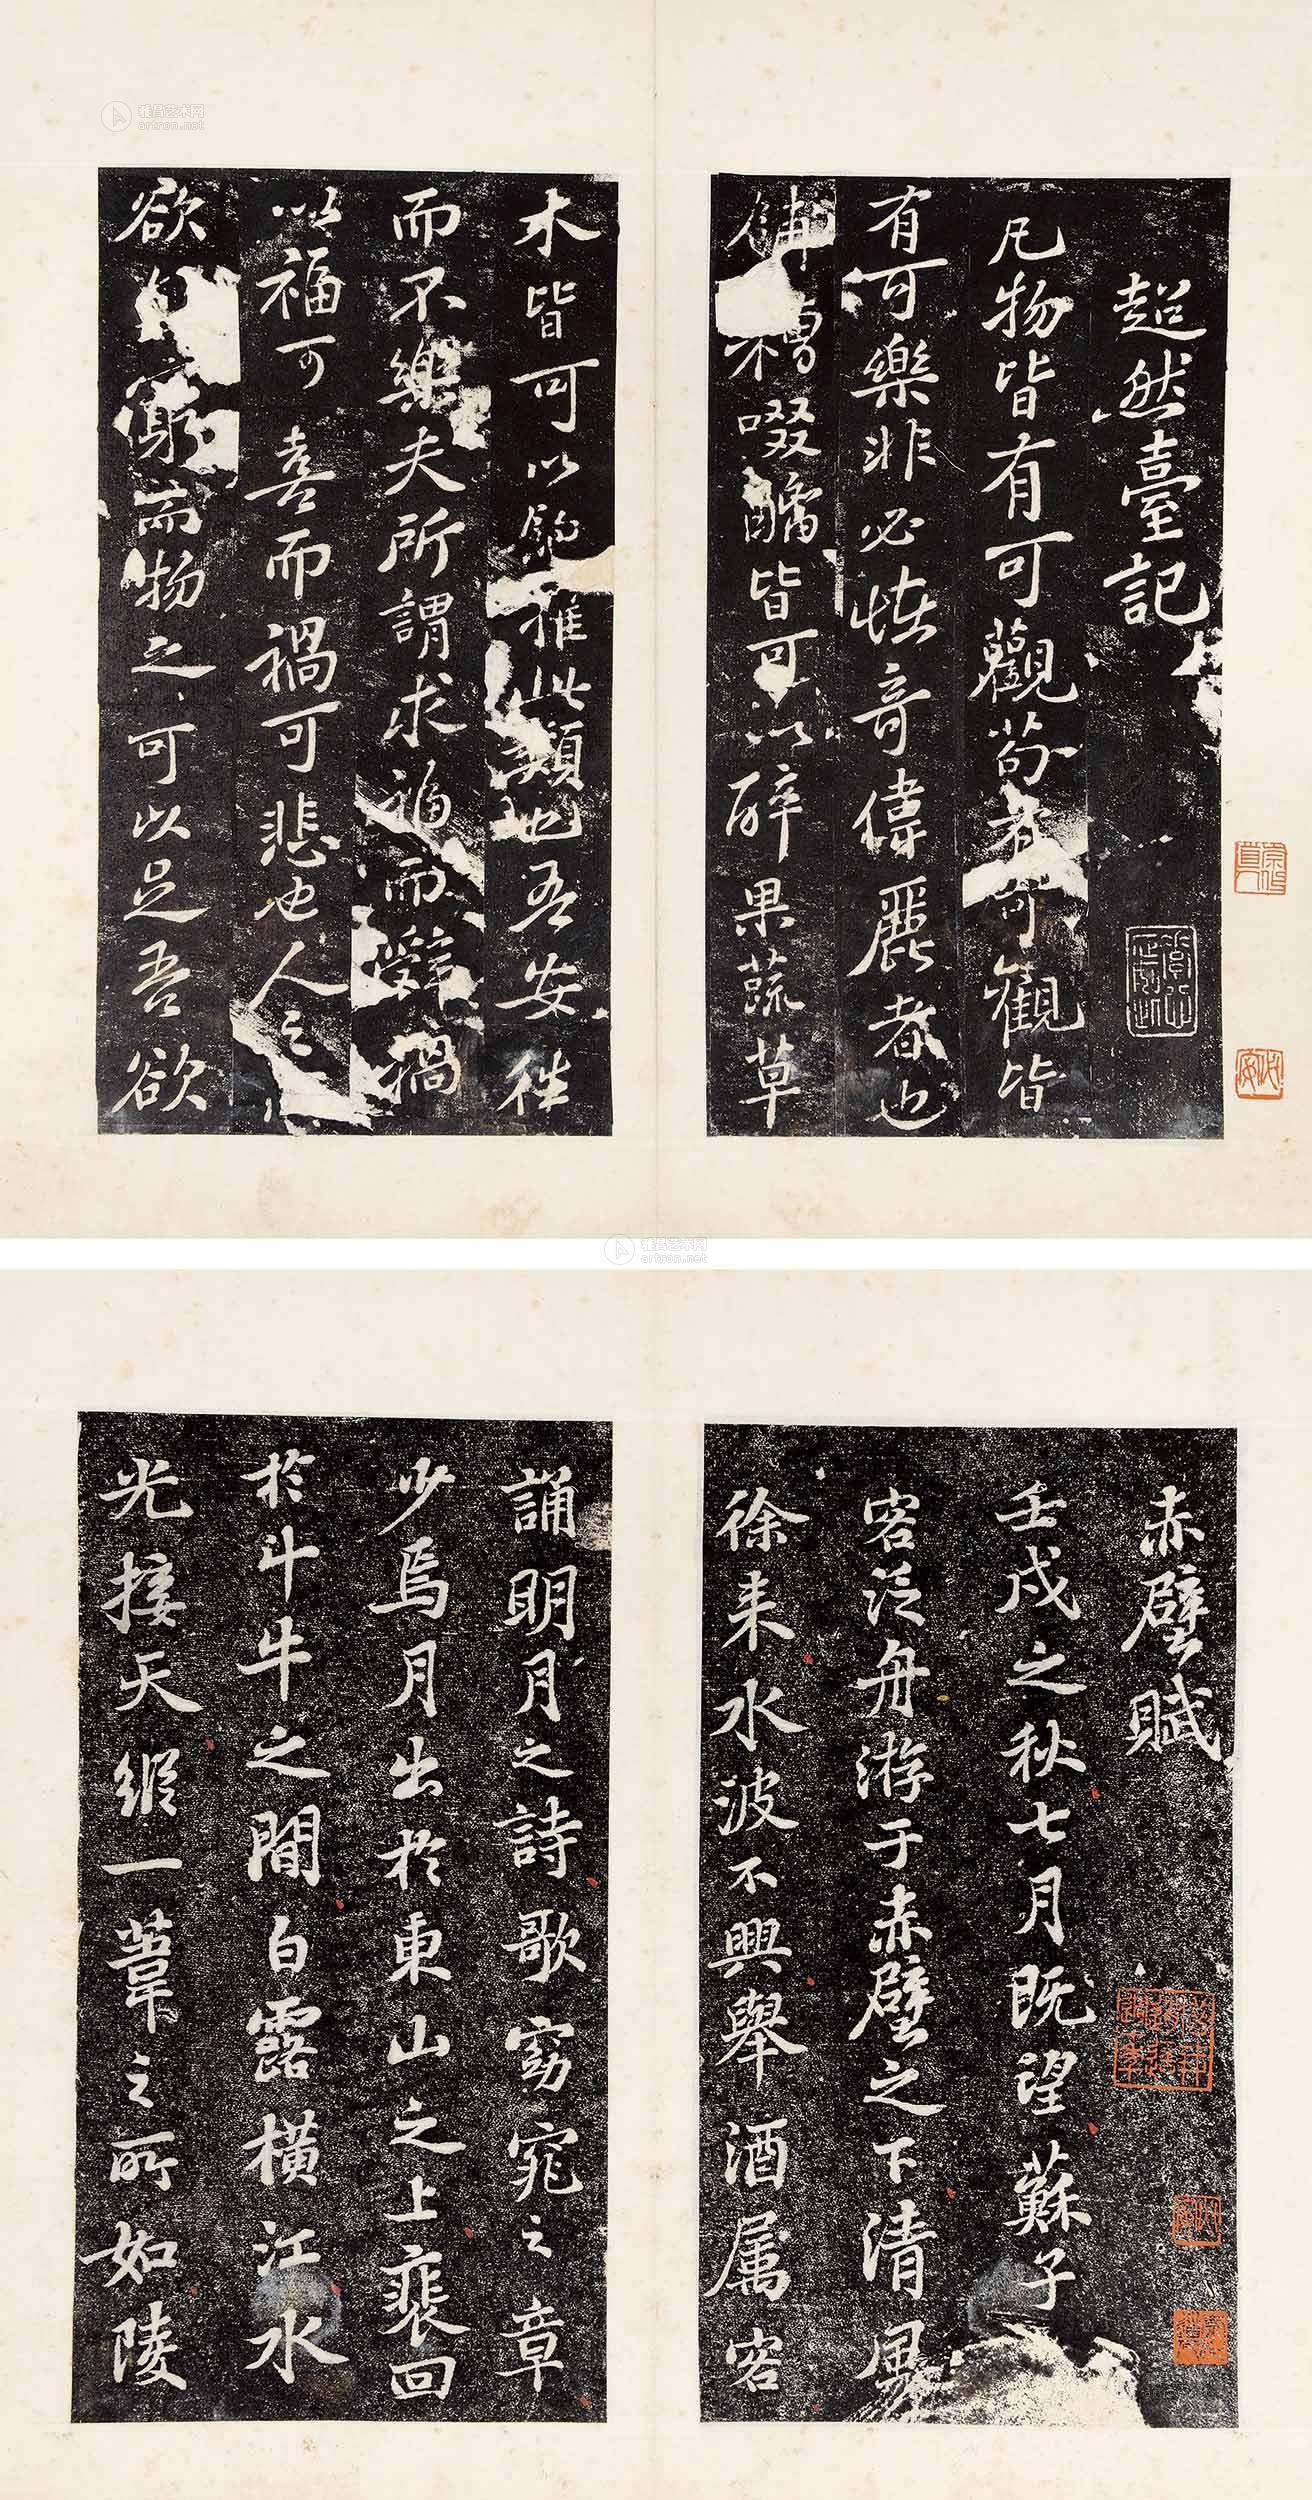 雅昌艺术网
artron.net
超然臺記
凡物皆有可觀苟有可觀皆
有可樂非必恠奇偉麗者也
餔糟啜醨皆可以醉果蔬草
木皆可以飽推此類也吾安往
而不樂夫所謂求福而辤禍
以福可喜而禍可悲也人之
欲無窮而物之可以足吾欲
雅昌艺术网
artron.net
赤壁賦
壬戌之秋七月既望蘇子
客泛舟游于赤壁之下清風
徐来水波不興舉酒属客
誦明月之詩歌窈窕之章
少焉月出於東山之上裴回
於斗牛之間白露橫江水
光接天縱一葦之所如陵